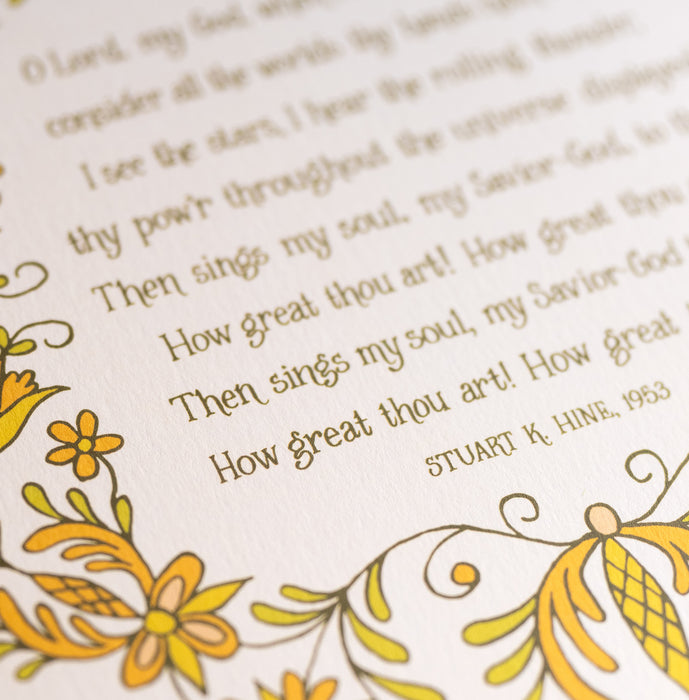 O Lord, my God, when
consider all the worlds thy
I see the stars, I hear the rolling thunder,
thy pow'r throughout the universe displayed
Then sings my soul, my Savior-God, to
How great thou art! How great thou
Then sings my soul, my Savior-God
How great thou art! How great
STUART K. HINE, 1953